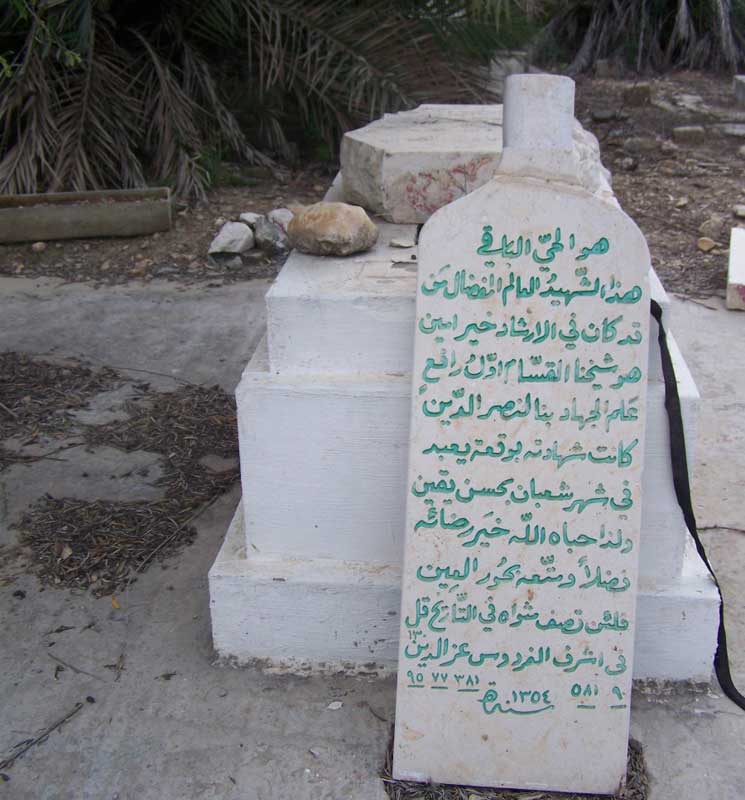 هو الحيّ الباقي
هذا الشّهيدُ العالم المفضال مَن
قد كان في الارشاد خير امين
هو شيخنا القسّام اوّلُ رافع
عَلم الجهاد بنا لنصر الدّين
كانت شهادته بوقعة يعبد
في شهر شعبان بحسن يقين
ولذا حباه الله خَير رضائه
فضلاً ومتّعه بحُور العِين
فلئن تصف مثواه في التّاريخ قل
١٣٠
في اشرف الفردوس عز الدين
٩٠ ٥٨١ ٣٨١ ٧٧ ٩٥
سنة ١٣٥٤